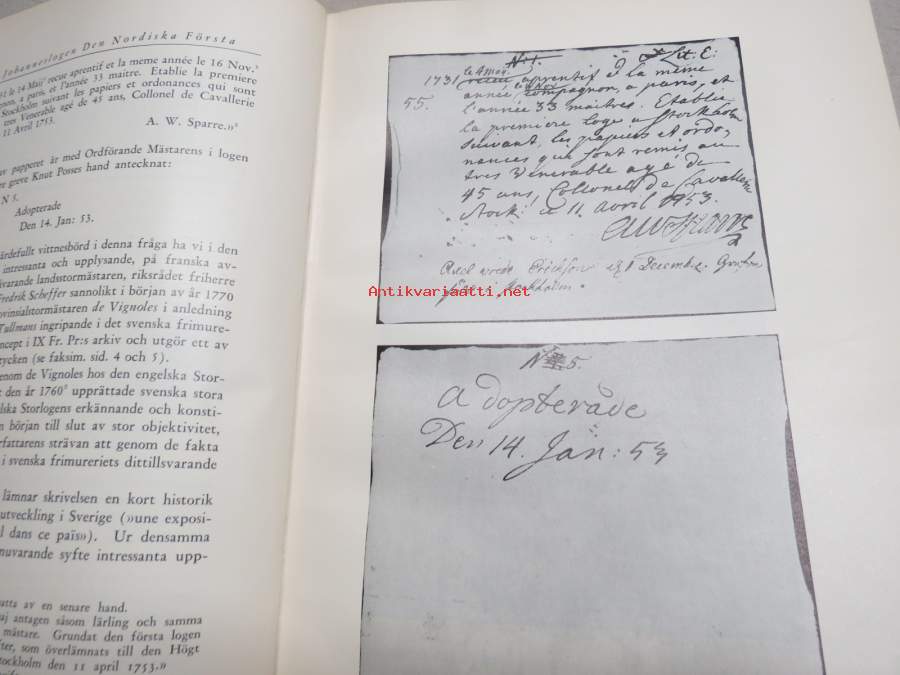 Johanneslogen Den Nordiska Första
le 14 Maij recue aprentif et la meme année le 16 Nov.
a paris, et l'année 33 maitre. Etablie la premiere
Stockholm suivant les papiers et ordonances qui sont
tres Venerable agé de 45 ans, Collonel de Cavallerie
11 Avril 1753.
A. W. Sparre.»
papperet är med Ordförande Mästarens i logen
greve Knut Posses hand antecknat:
N 5.
Adopterade
Den 14. Jan: 53.
värdefullt vittnesbörd i denna fråga ha vi i den
intressanta och upplysande, på franska av-
varande landsstormästaren, riksrådet friherre
Fredrik Scheffer sannolikt i början av år 1770
provinsialstormästaren de Vignoles i anledning
Tullmans ingripande i det svenska frimure-
concept i IX Fr. Pr:s arkiv och utgör ett av
tycken (se faksim. sid. 4 och 5).
genom de Vignoles hos den engelska Stor-
t den år 1760 upprättade svenska stora
lska Storlogens erkännande och konsti-
n början till slut av stor objektivitet,
rfattarens strävan att genom de fakta
i svenska frimureriets dittillsvarande
lämnar skrivelsen en kort historik
utveckling i Sverige (»une exposi-
l dans ce païs»). Ur densamma
nuvarande syfte intressanta upp-
atta av en senare hand.
aj antagen såsom lärling och samma
mästare. Grundat den första logen
fter, som överlämnats till den Högt
tockholm den 11 april 1753.»
N:1. Lit: E:
1731 le 4 Mai aprentif et la même
55. année, compagnon, a paris, et
l'année 33 maitres. Etablie
la premiere loge a Stockholm
suivant, les papiers et ordo,
nances qui sont remis au
tres Vénerable agé de
45 ans, Collonel de Cavallerie
Stock: le 11. avril 1753.
AWSparre
Axel wrede Erickson d. 1 Decembr.
i Stockholm.
Antikvariaatti.net
N 5.
Adopteråde
Den 14. Jan: 53